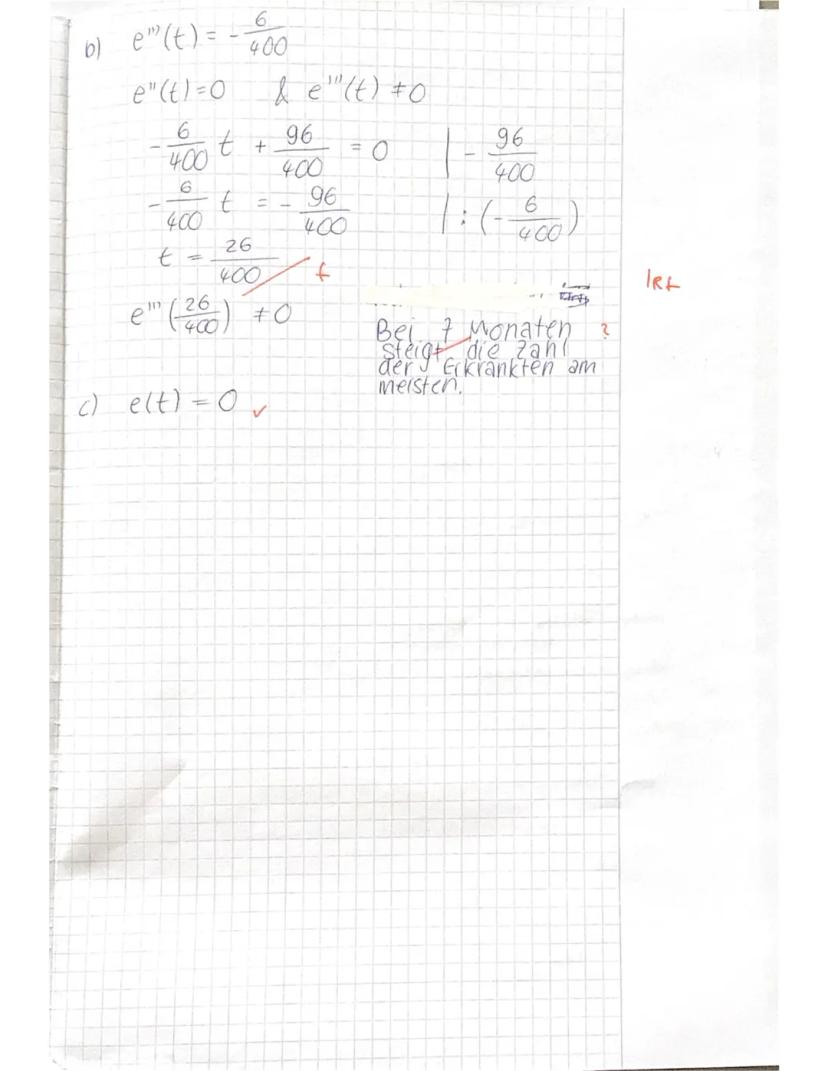 b) e'''(t) = - 6/400
e''(t) = 0 & e'''(t) ≠ 0
- 6/400 t + 96/400 = 0 | - 96/400
- 6/400 t = - 96/400 | : (- 6/400)
t = 26/400 f
1Rf
e''' (26/400) ≠ 0
Bei 7 Monaten ?
steigt die Zahl
der Erkrankten am
meisten.
c) e(t) = 0 ✓